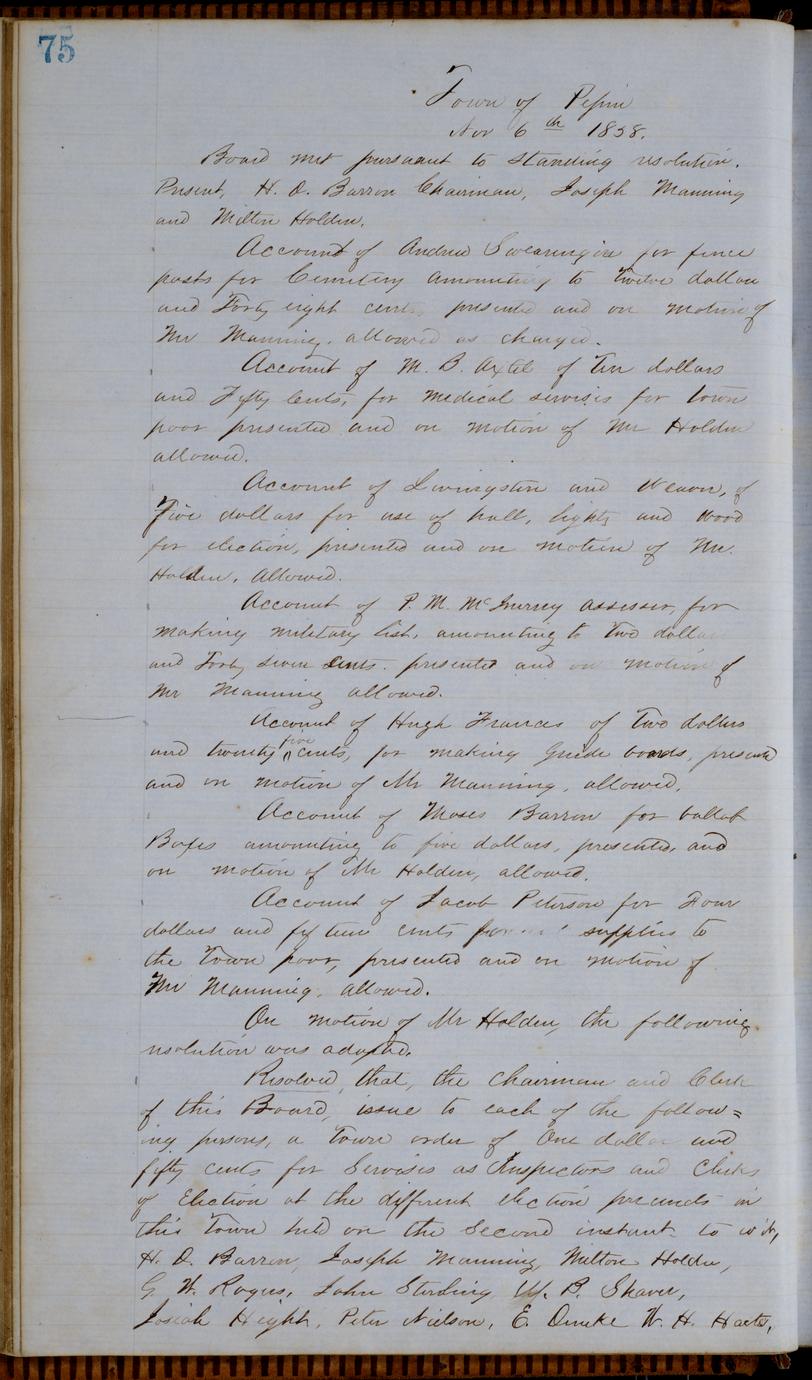 75
Town of Pepin
Nov 6th 1858.
Board met pursuant to standing resolution.
Present, H. D. Barron Chairman, Joseph Manning
and Milton Holden.
Account of Andrew Swearingin for fence
posts for Cemetery amounting to Twelve dollars
and Forty eight cents, presented and on motion of
Mr Manning. allowed as charged.
Account of M. B. Axtel of Ten dollars
and Fifty Cents, for medical servises for town
poor presented and on motion of Mr Holden
allowed.
Account of Livingston and Weaver, of
Five dollars for use of hall, lights and wood
for election, presented and on motion of Mr.
Holden, allowed.
Account of P. M. assessor, for
making military list, amounting to Two dollars
and Forty seven cents. presented and on motion of
Mr Manning allowed.
Account of Hugh Frances of Two dollars
and twenty five cents, for making Guide boards, presented
and on motion of Mr Manning, allowed.
Account of Moses Barron for ballot
Boxes amounting to five dollars, presented, and
on motion of Mr Holden, allowed.
Account of Jacob Peterson for Four
dollars and fifteen cents for supplies to
the Town poor, presented and on motion of
Mr Manning, allowed.
On motion of Mr Holden, the following
resolution was adopted.
Resolved, that, the Chairman and Clerk
of this Board, issue to each of the follow=
ing persons, a Town order of One dollar and
fifty cents for Servises as Inspectors and Clerks
of Election at the different election precincts in
this Town held on the Second instant to wit,
H. D. Barron, Joseph Manning, Milton Holden,
G. W. Rogers, John Sterling, W. B. Shaver,
Josiah Height, Peter Nielson, E. W. H.